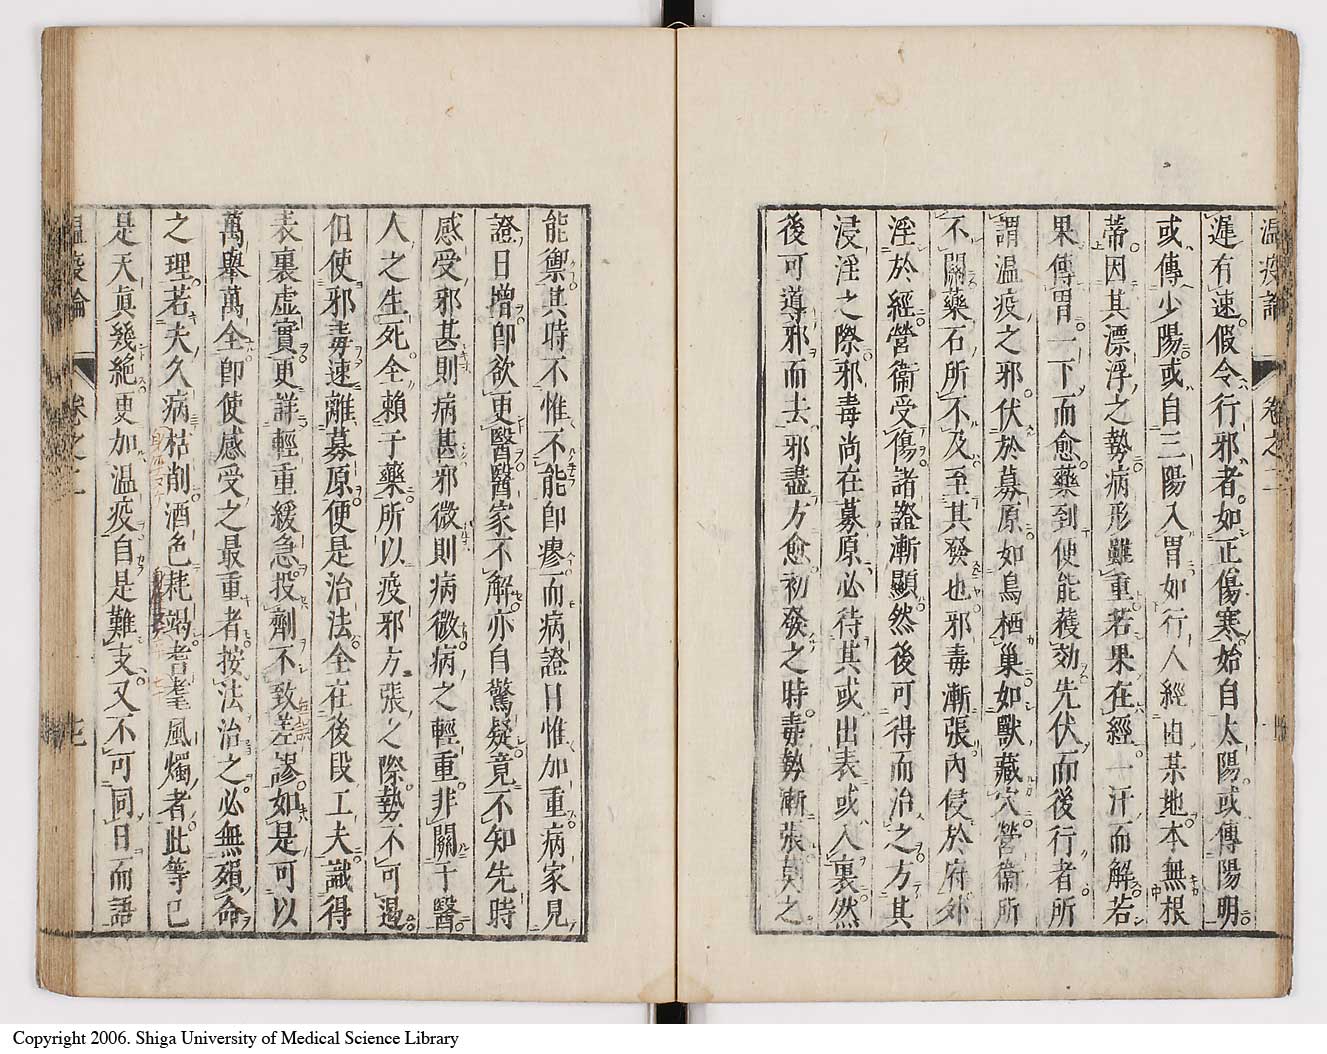 温疫論
卷之二
遲有速假令行邪者如正傷寒始自太陽或傳陽明
或傳少陽或自三陽入胃如行人經由某地本無根
蒂因其漂浮之勢病形雖重若果在經一汗而解若
果傳胃一下而愈藥到便能獲効先伏而後行者所
謂温疫之邪伏於募原如鳥栖巢如獸藏穴營衞所
不關藥石所不及至其發也邪毒漸張內侵於府外
淫於經營衞受傷諸證漸顯然後可得而治之方其
浸淫之際邪毒尚在募原必待其或出表或入裏然
後可導邪而去邪盡方愈初發之時毒勢漸張莫之
能禦其時不惟不能卽瘳而病證日惟加重病家見
證日增卽欲更醫醫家不解亦自驚疑竟不知先時
感受邪甚則病甚邪微則病微病之輕重非關于醫
人之生死全賴于藥所以疫邪方張之際勢不可遏
但使邪毒速離募原便是治法全在後段工夫識得
表裏虛實更詳輕重緩急投劑不致差謬如是可以
萬舉萬全卽使感受之最重者按法治之必無殞命
之理若夫久病枯削酒色耗竭耆耄風燭者此等已
是天眞幾絶更加温疫自是難支又不可同日而語
温疫論
卷之二
Copyright 2006. Shiga University of Medical Science Library